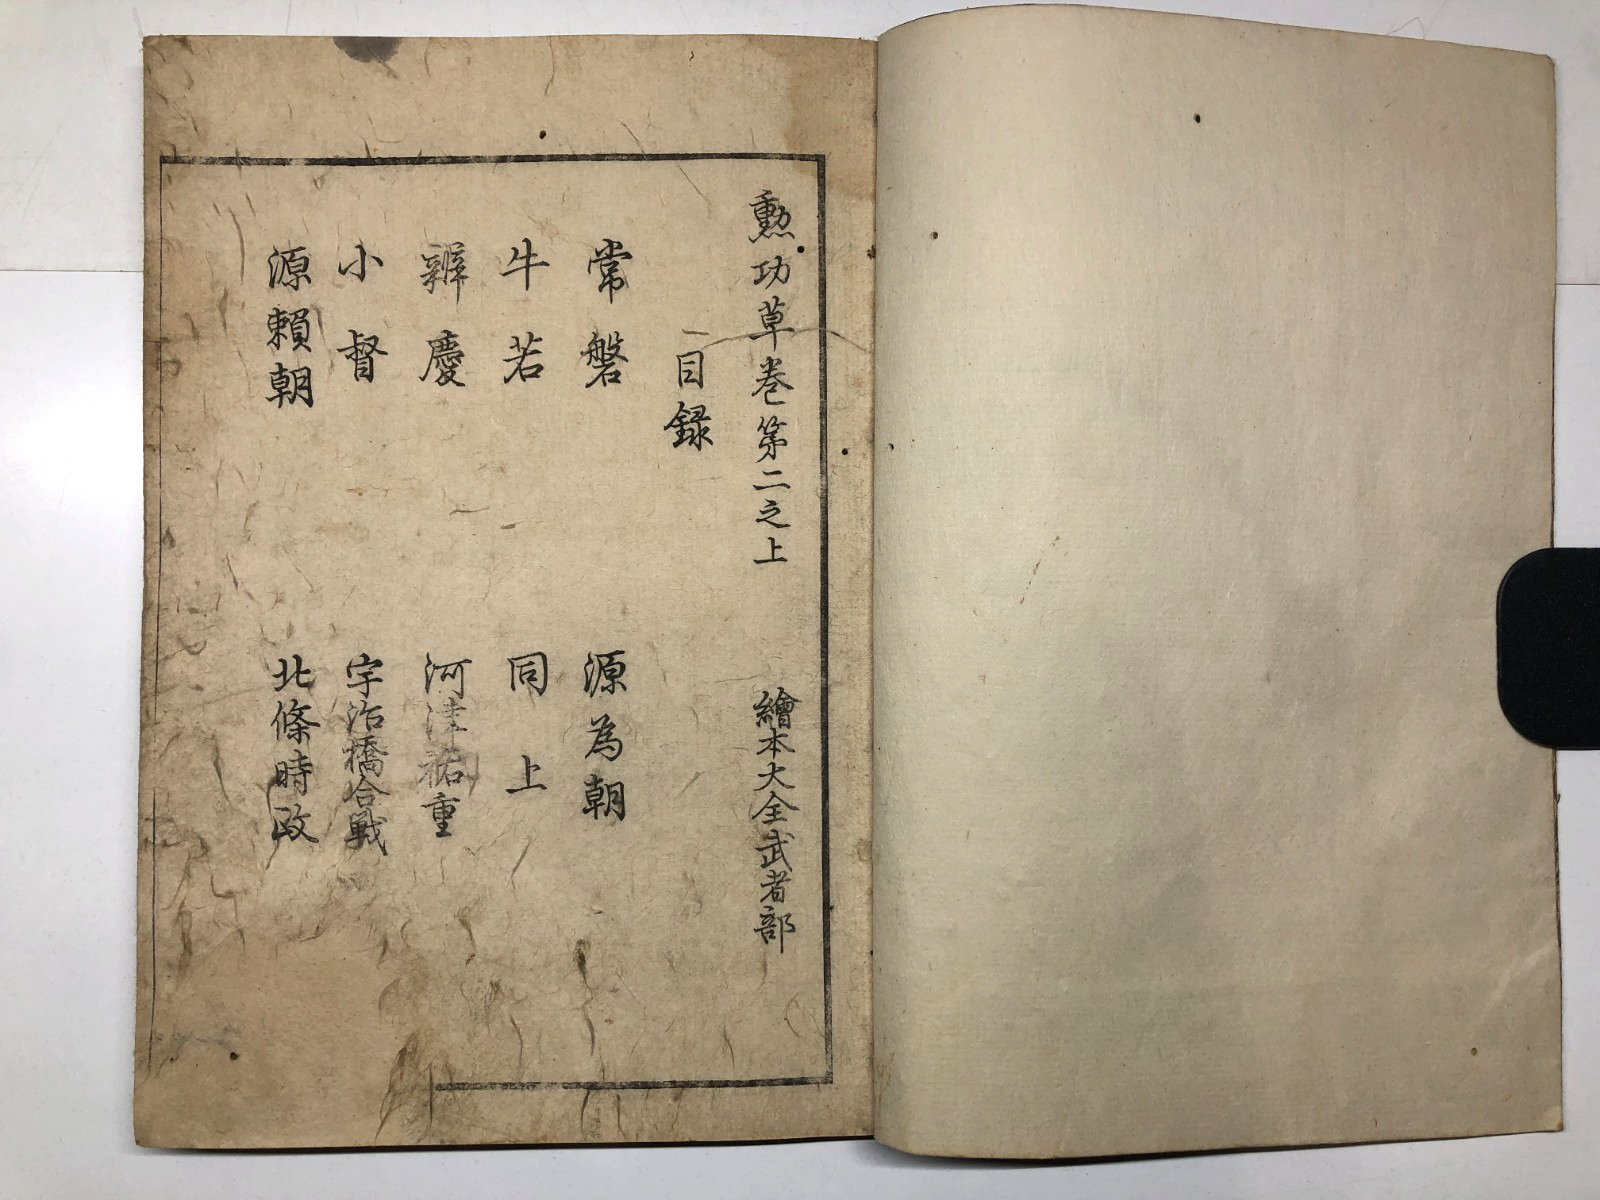 勲功草巻第二之上　繪本大全武者部
目録
常磐　源為朝
牛若　同上
辨慶　河津祐重
小督　宇治橋合戦
源頼朝　北條時政